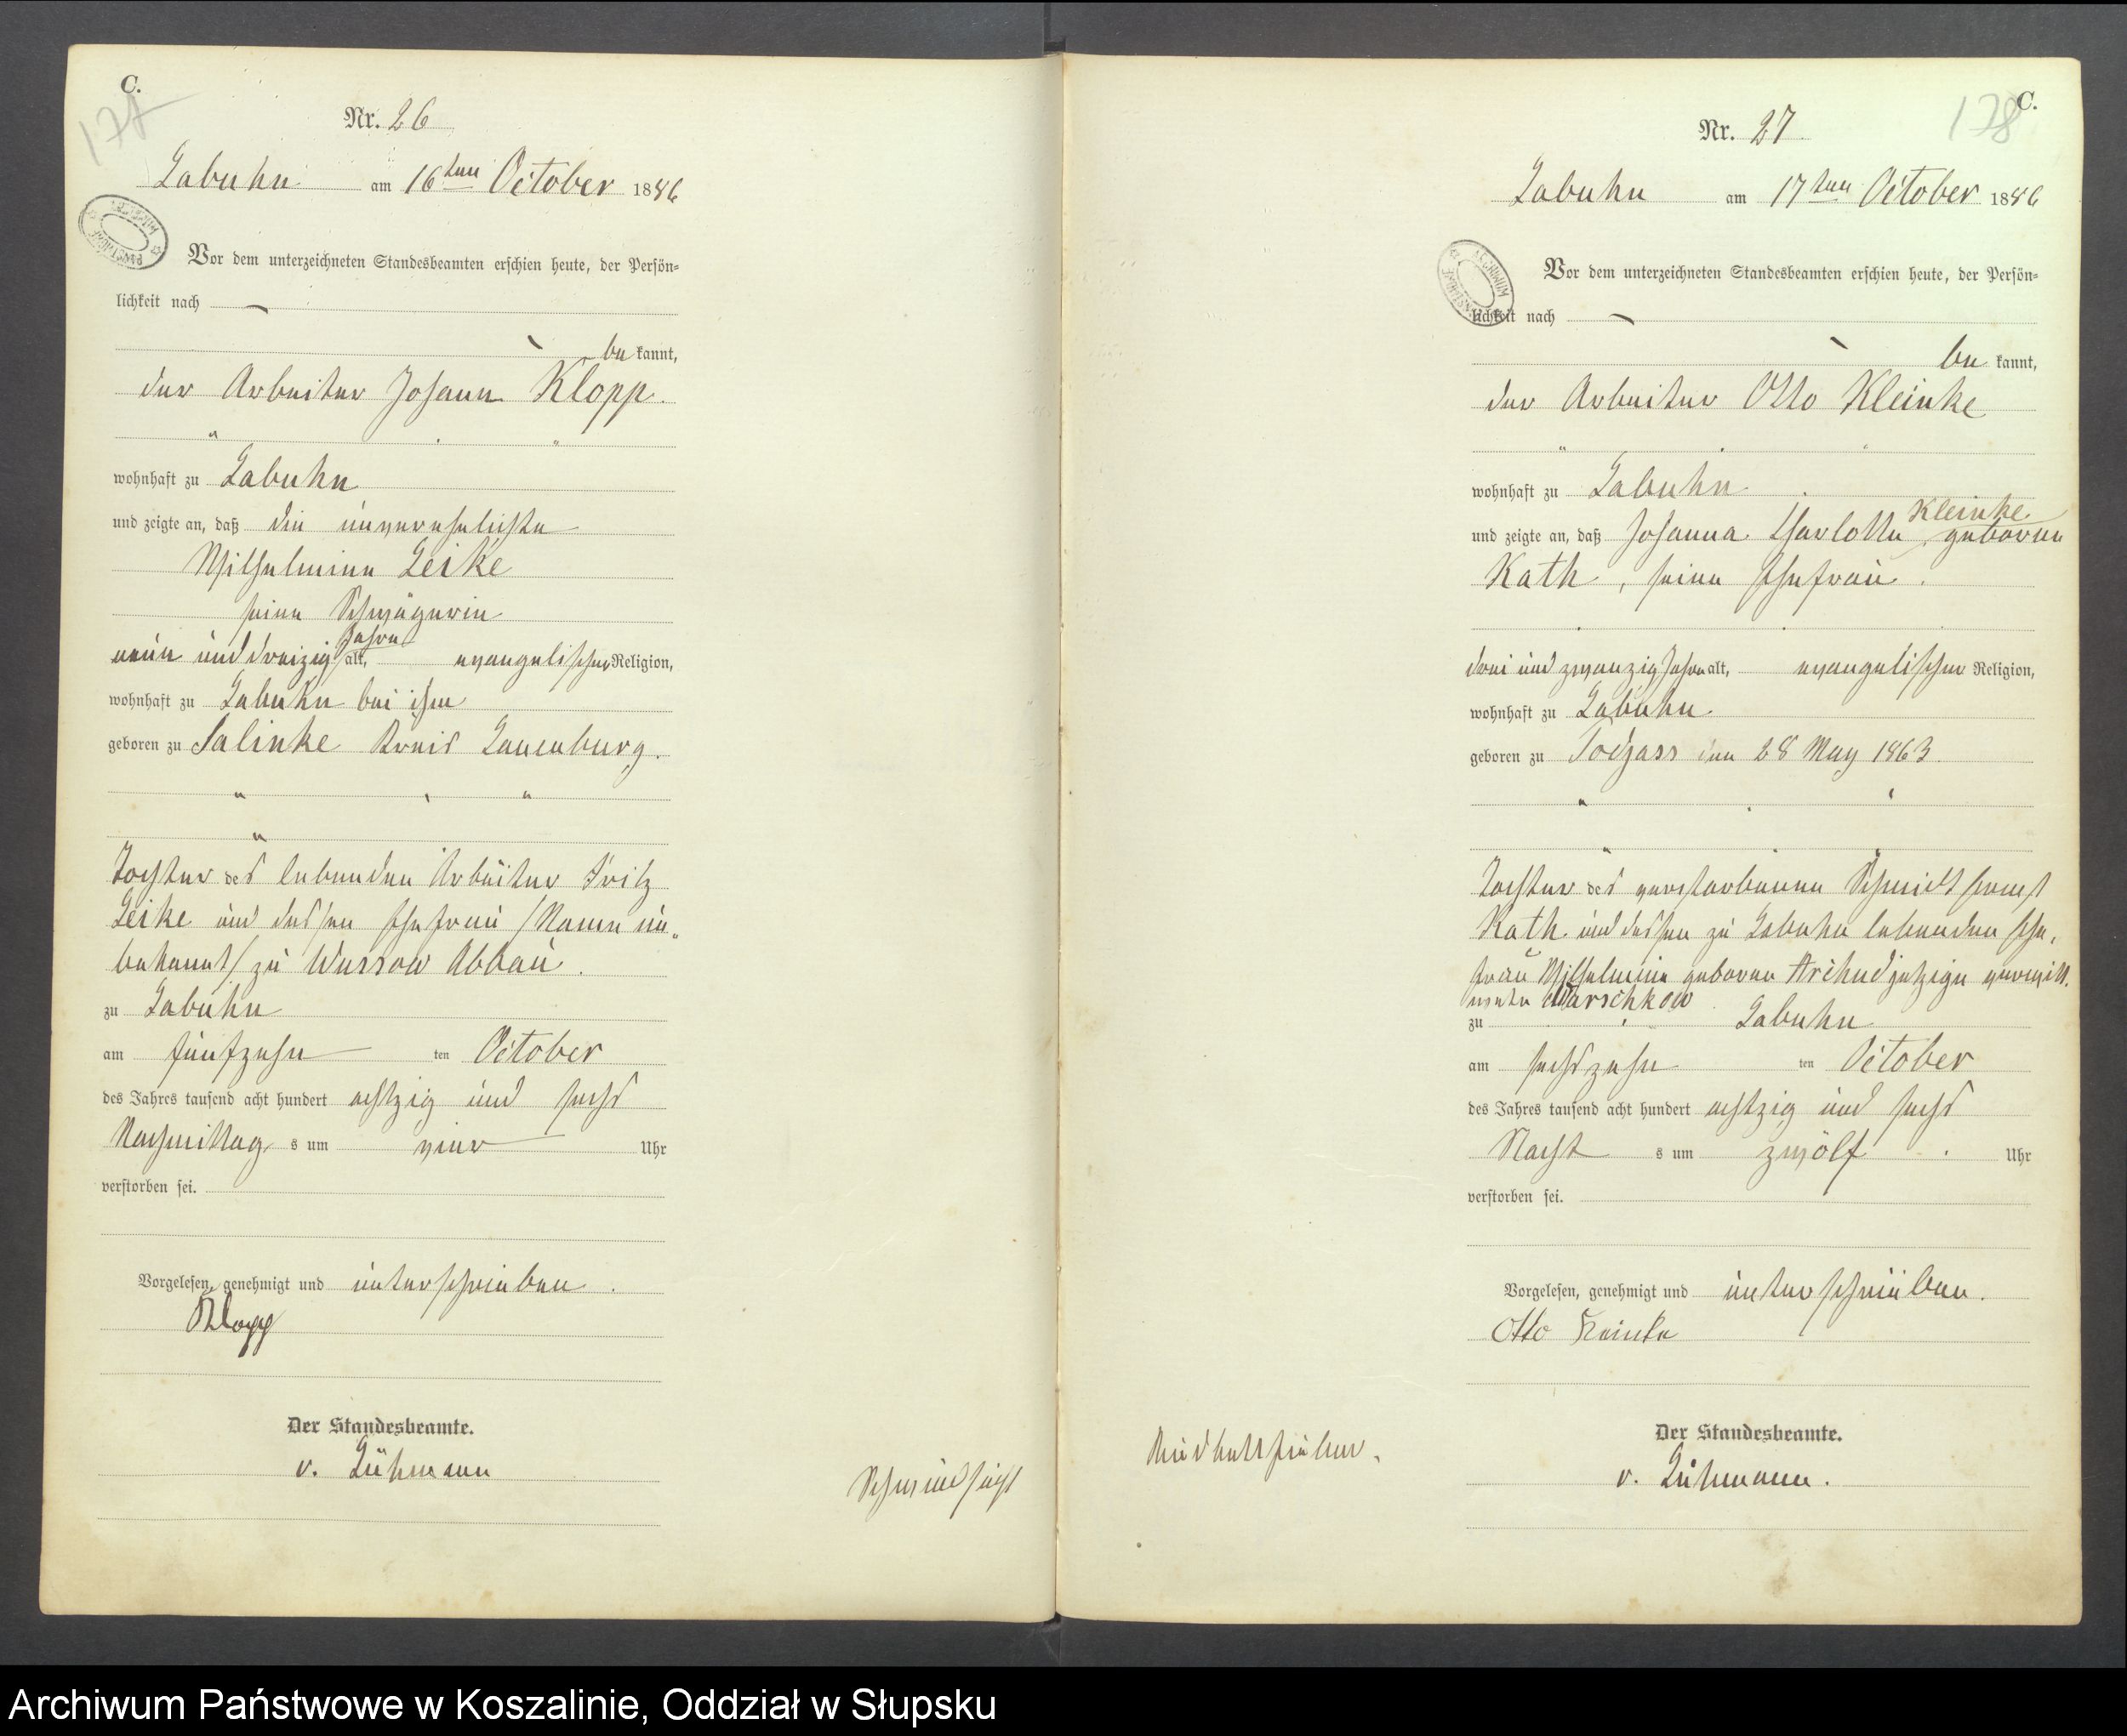 C.
177
Nr. 26
Labuhn am 16ten October 1886
Vor dem unterzeichneten Standesbeamten erschien heute, der Persön=
lichkeit nach
be kannt,
der Arbeiter Johann Klopp.
wohnhaft zu Labuhn
und zeigte an, daß die unverehelichte
Wilhelmine Leike
seine Schwägerin
neun und dreizig Jahre alt, evangelischer Religion,
wohnhaft zu Labuhn bei ihm
geboren zu Salinke Kreis Lauenburg.
Tochter des lebenden Arbeiter Fritz
Leike und dessen Ehefrau /Name un„
bekannt/ zu Wussow Abbau.
zu Labuhn
am fünfzehn ten October
des Jahres tausend acht hundert achtzig und sechs
Nachmittag s um vier Uhr
verstorben sei.
Vorgelesen, genehmigt und unterschrieben.
Klopp
Der Standesbeamte.
v. Lühmann
Schwindsucht
C.
178
Nr. 27
Labuhn am 17ten October 1886
Vor dem unterzeichneten Standesbeamten erschien heute, der Persön=
lichkeit nach
be kannt,
der Arbeiter Otto Kleinke
wohnhaft zu Labuhn
und zeigte an, daß Johanna Charlotte Kleinke geborene
Kath, seine Ehefrau.
drei und zwanzig Jahre alt, evangelischer Religion,
wohnhaft zu Labuhn
geboren zu den 28 May 1863
Tochter des verstorbenen Schmidt Ernst
Kath und dessen zu Labuhn lebenden Ehe,
frau Wilhelmine geborene jetzige verwitt.
wete Warschkow
zu Labuhn
am sechszehn ten October
des Jahres tausend acht hundert achtzig und sechs
Nacht s um zwölf Uhr
verstorben sei.
Vorgelesen, genehmigt und unterschrieben.
Otto Kleinke
Der Standesbeamte.
v. Lühmann.
Kindbettfieber.
Archiwum Państwowe w Koszalinie, Oddział w Słupsku